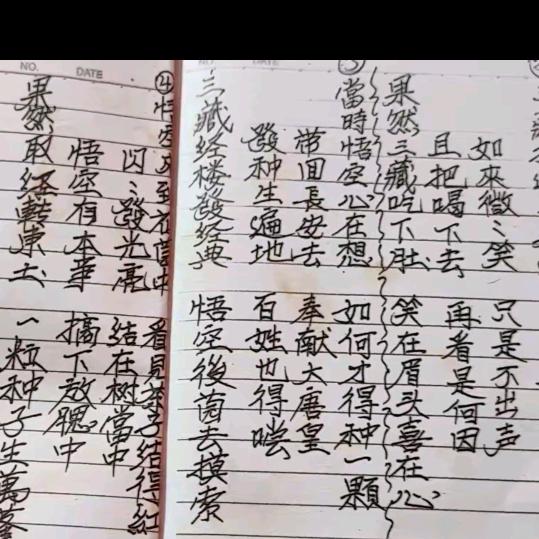 如來微〻笑 只是不出声
且把喝下去 再看是何因
果然三藏吃下肚 笑在眉头喜在心
當時悟空心在想 如何才得种一顆
带回長安去 奉献大唐皇
發种生遍地 百姓也得嚐
三藏经楼發经典 悟空後菌去摸索
④ 悟空 看見李子结得紅
閃〻發光亮 结在树當中
悟空有本事 摘下放腮中
果然取经轉東土 一粒种子生萬
NO. DATE